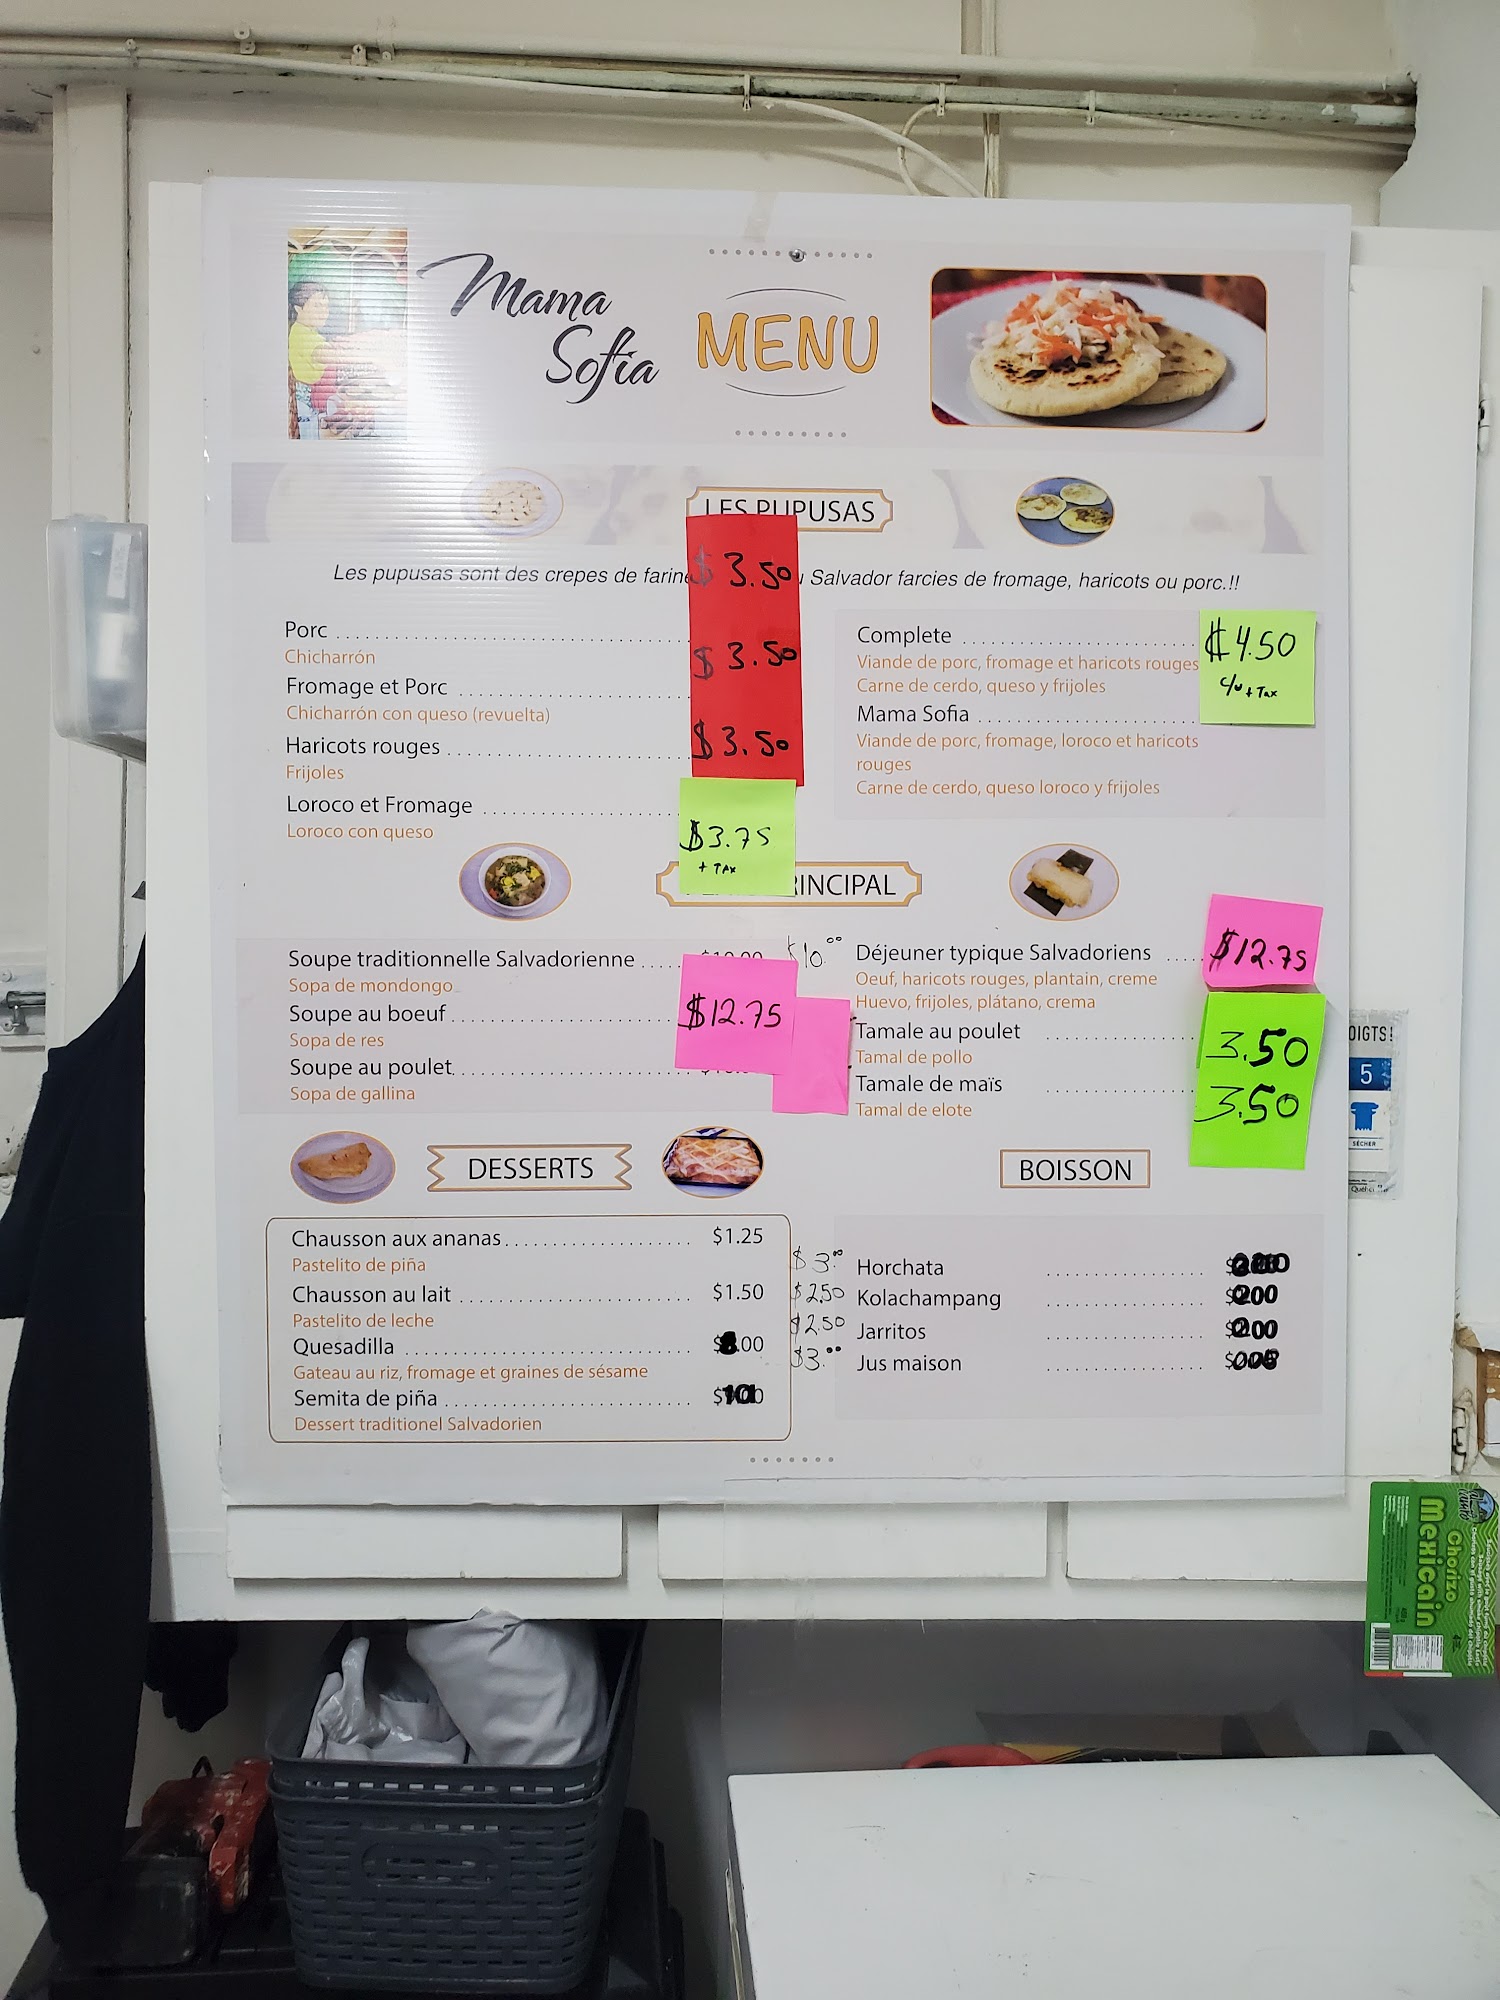 Mama
Sofia
MENU
LES PUPUSAS
Les pupusas sont des crepes de farine Salvador farcies de fromage, haricots ou porc.!!
$ 3.50
Porc
Chicharrón
$ 3.50
Fromage et Porc
Chicharrón con queso (revuelta)
Haricots rouges $3.50
Frijoles
Loroco et Fromage $3.75
+ TAX
Loroco con queso
Complete $4.50
c/u + Tax
Viande de porc, fromage et haricots rouges
Carne de cerdo, queso y frijoles
Mama Sofia
Viande de porc, fromage, loroco et haricots
rouges
Carne de cerdo, queso loroco y frijoles
PRINCIPAL
Soupe traditionnelle Salvadorienne $10.00
Sopa de mondongo
Soupe au boeuf $12.75
Sopa de res
Soupe au poulet
Sopa de gallina
Déjeuner typique Salvadoriens $12.75
Oeuf, haricots rouges, plantain, creme
Huevo, frijoles, plátano, crema
Tamale au poulet 3.50
Tamal de pollo
Tamale de maïs 3.50
Tamal de elote
DESSERTS
Chausson aux ananas $1.25
Pastelito de piña
Chausson au lait $1.50
Pastelito de leche
Quesadilla $8.00
Gateau au riz, fromage et graines de sésame
Semita de piña
Dessert traditionel Salvadorien
BOISSON
$3.00 Horchata
$2.50 Kolachampang
$2.50 Jarritos
$3.00 Jus maison
OIGTS!
5
SÉCHER
Chorizo
Mexicain